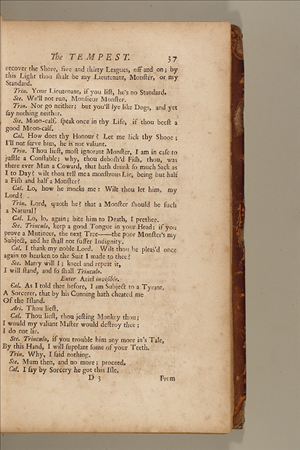 The TEMPEST. 37
recover the Shore, five and thirty Leagues, off and on; by
this Light thou shalt be my Lieutenant, Monster, or my
Standard.
Trin. Your Lieutenant, if you list, he's no Standard.
Ste. We'll not run, Monsieur Monster.
Trin. Nor go neither: but you'll lye like Dogs, and yet
say nothing neither.
Ste. Moon-calf, speak once in thy Life, if thou beest a
good Moon-calf.
Cal. How does thy Honour? Let me lick thy Shooe;
I'll not serve him, he is not valiant.
Trin. Thou liest, most ignorant Monster, I am in case to
justle a Constable; why, thou debosh'd Fish, thou, was
there ever Man a Coward, that hath drunk so much Sack as
I to Day? wilt thou tell me a monstrous Lie, being but half
a Fish and half a Monster?
Cal. Lo, how he mocks me: Wilt thou let him, my
Lord?
Trin. Lord, quoth he! that a Monster should be such
a Natural!
Cal. Lo, lo, again; bite him to Death, I prethee.
Ste. Trinculo, keep a good Tongue in your Head: if you
prove a Mutineer, the next Tree——the poor Monster's my
Subject, and he shall not suffer Indignity.
Cal. I thank my noble Lord. Wilt thou be pleas'd once
again to hearken to the Suit I made to thee?
Ste. Marry will I; kneel and repeat it,
I will stand, and so shall Trinculo.
Enter Ariel invisible.
Cal. As I told thee before, I am Subject to a Tyrant,
A Sorcerer, that by his Cunning hath cheated me
Of the Island.
Ari. Thou liest.
Cal. Thou liest, thou jesting Monkey thou;
I would my valiant Master would destroy thee;
I do not lie.
Ste. Trinculo, if you trouble him any more in's Tale,
By this Hand, I will supplant some of your Teeth.
Trin. Why, I said nothing.
Ste. Mum then, and no more; proceed.
Cal. I say by Sorcery he got this Isle,
D 3 From